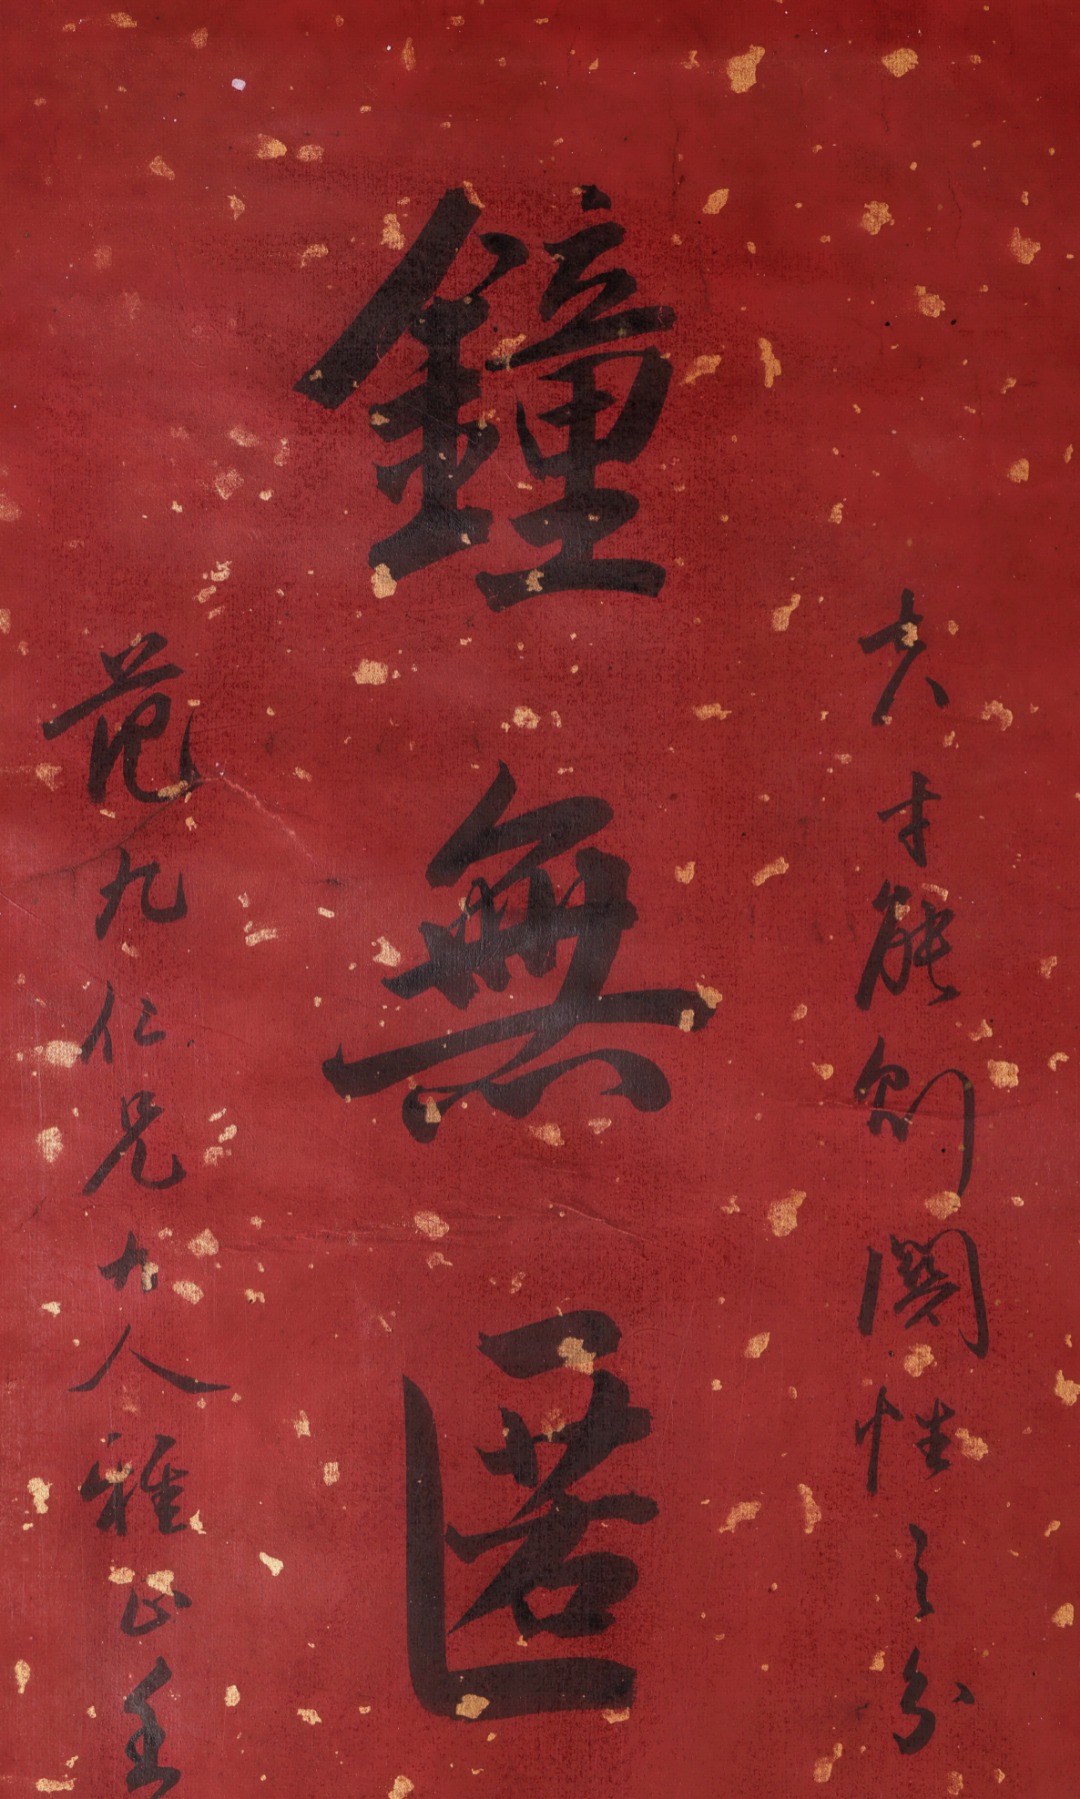 夫才能則關性之分
鐘無匿
范九仁兄大人雅正 壬